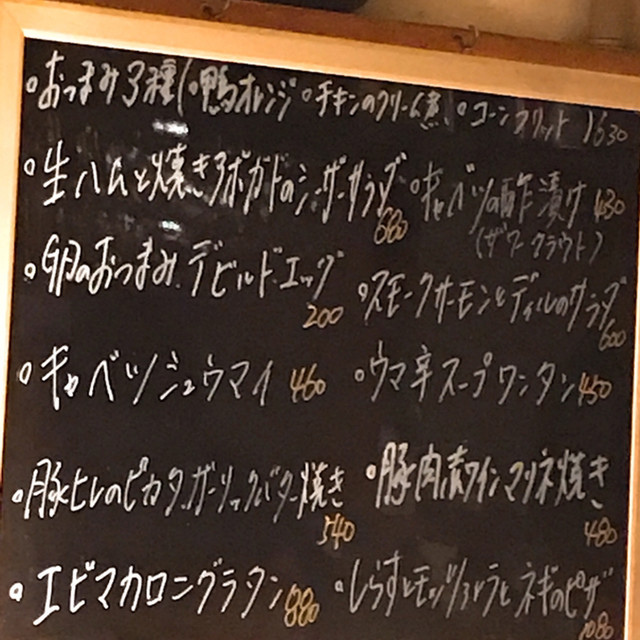 ◦おつまみ3種(◦鴨オレンジ ◦チキンのクリーム煮 ◦コーンフリット 1630
◦生ハムと焼きアボガドのシーザーサラダ 680
◦キャベツの酢漬け 430
(ザワークラウト)
◦卵のおつまみ デビルドエッグ 200
◦スモークサーモンとディルのサラダ 600
◦キャベツシュウマイ 460
◦ウマ辛スープワンタン 450
◦豚ヒレのピカタ ガーリックバター焼き 540
◦豚肉 ワインマリネ焼き 480
◦エビマカロニグラタン 880
◦しらすとモッツァレラとネギのピザ 1080